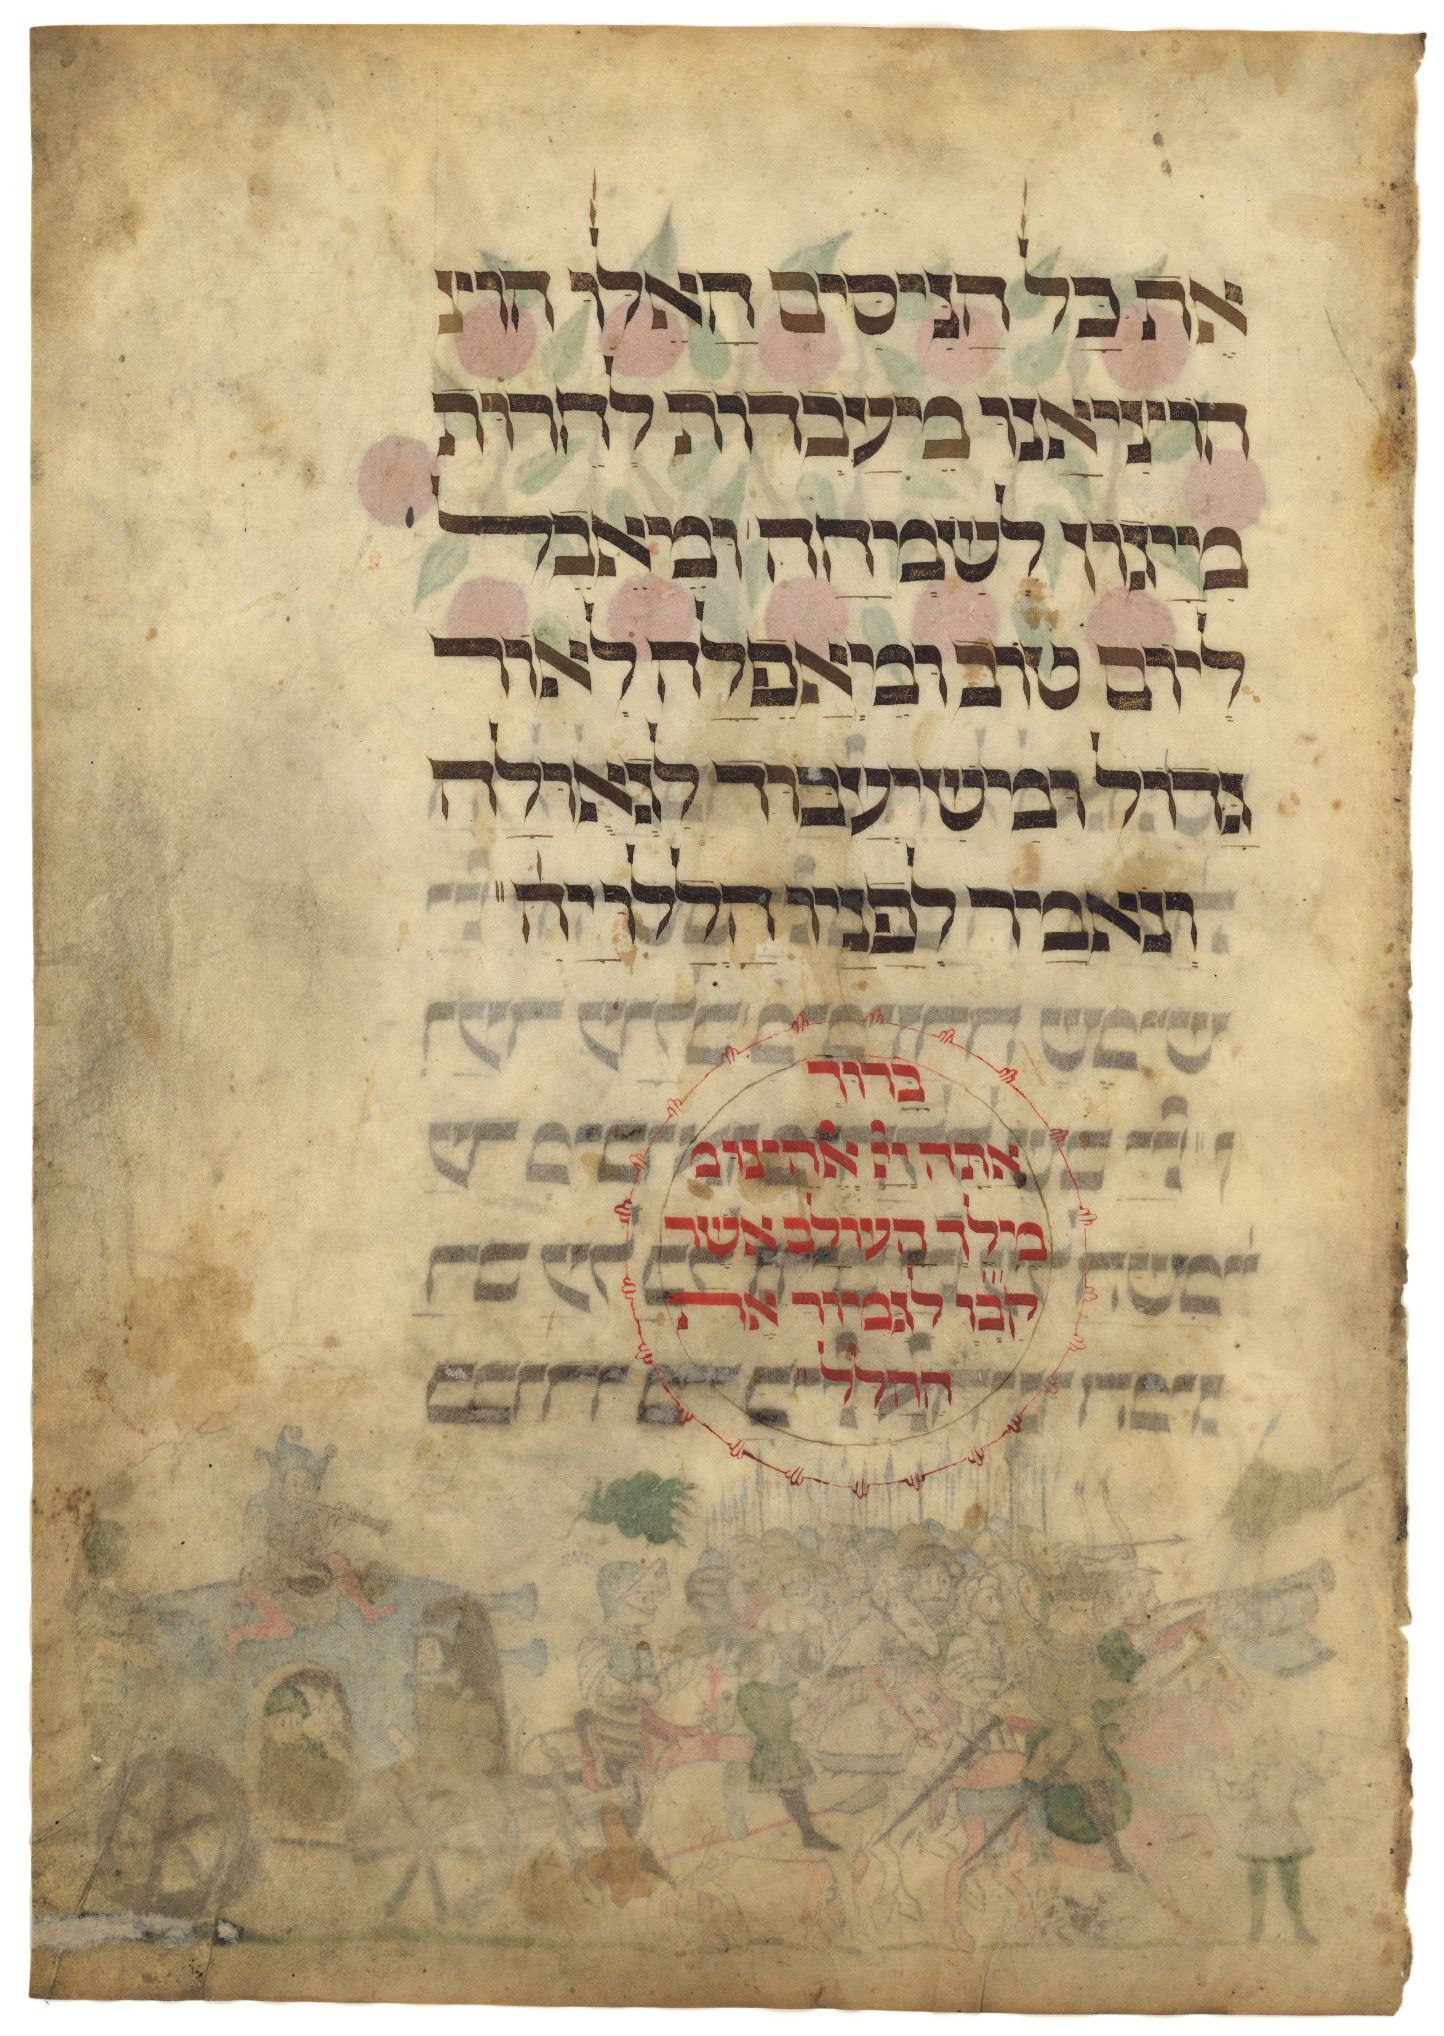 את כל הניסים האלו הוצ
הוציאנו מיעבדות לחרות
מייגון לשמחה ומיאבל
ליום טוב ומיאפלה לאור
גדול ומישיעבוד לגאולה
ונאמיר לפניו הללו יה״
ברוך
אתה יי אלהינו מ
מלך העולם אשר
קב״ו לגמור את
ההלל״